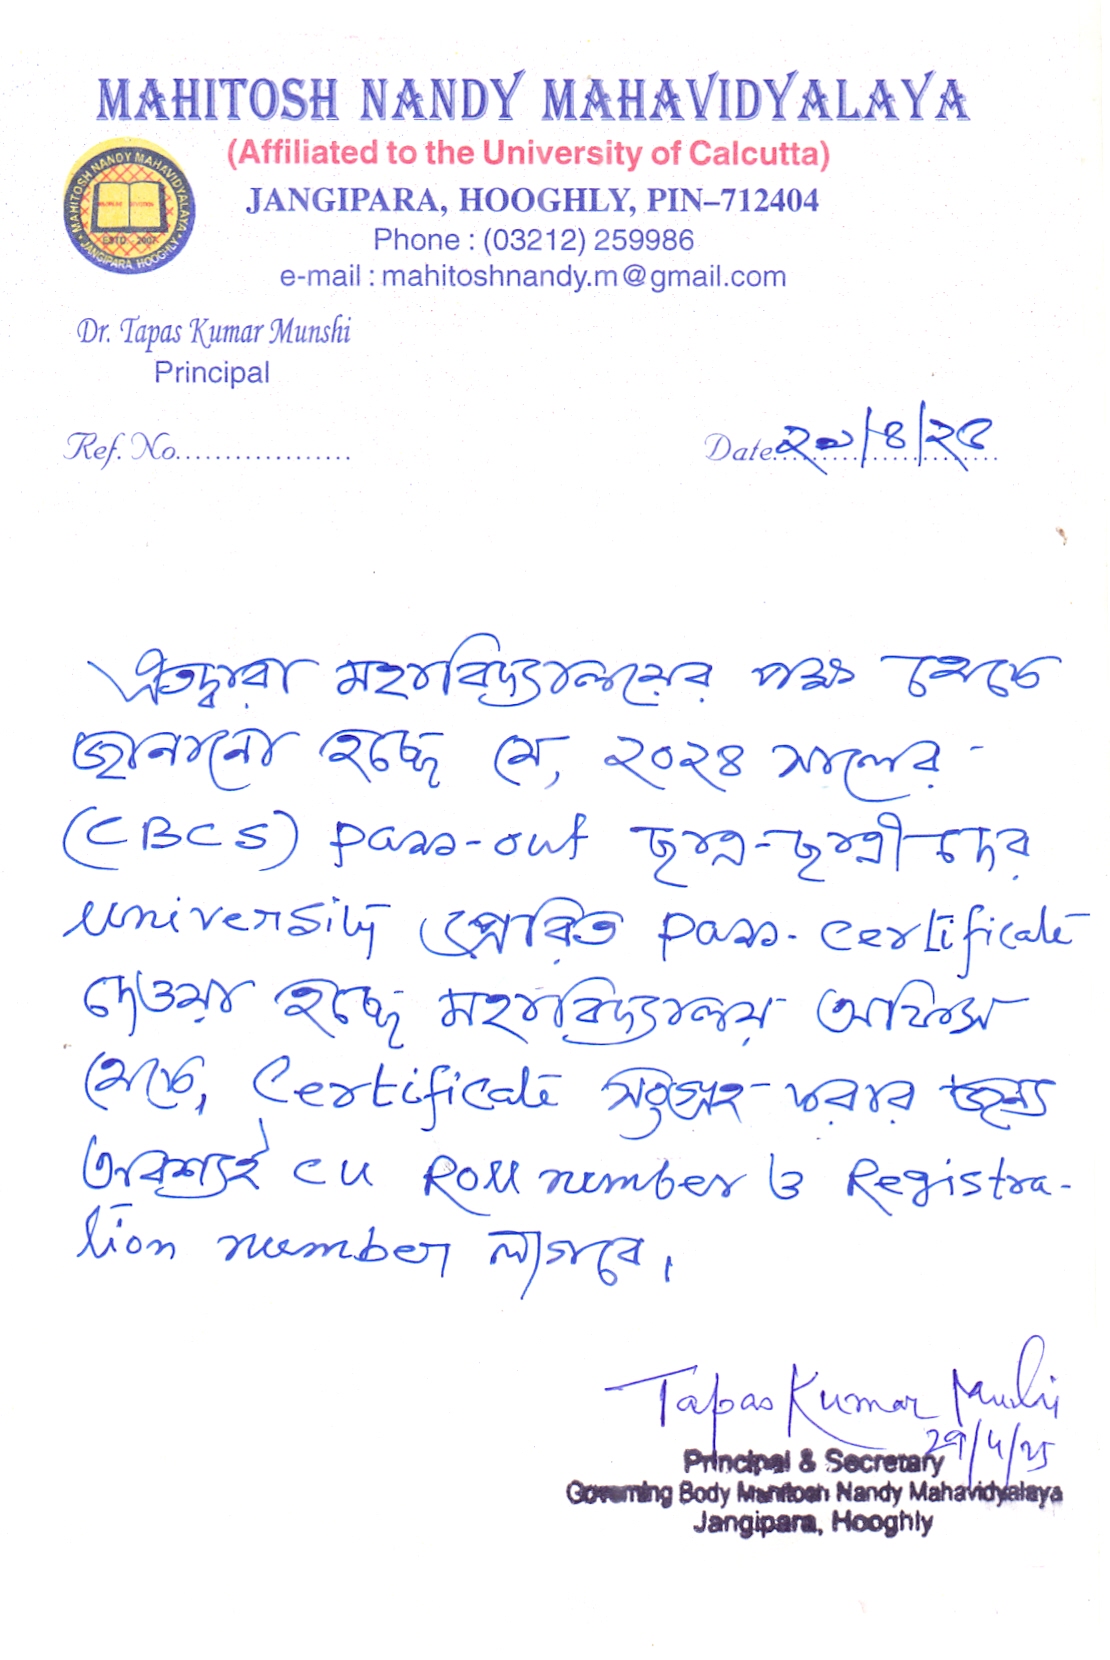 MAHITOSH NANDY MAHAVIDYALAYA
(Affiliated to the University of Calcutta)
JANGIPARA, HOOGHLY, PIN–712404
Phone : (03212) 259986
e-mail : mahitoshnandy.m@gmail.com
MAHITOSH NANDY MAHAVIDYALAYA
ESTD 2007
JANGIPARA, HOOGHLY
Dr. Tapas Kumar Munshi
Principal
Ref. No..................
Date ২৯/৪/২৫
এতদ্বারা মহাবিদ্যালয়ের পক্ষ থেকে
জানানো হচ্ছে যে, ২০২৪ সালের -
(CBCS) pass-out ছাত্র-ছাত্রীদের
university প্রেরিত pass-certificate
দেওয়া হচ্ছে মহাবিদ্যালয় অফিস
থেকে, Certificate সংগ্রহ করার জন্য
অবশ্যই CU Roll number ও Registra-
tion number লাগবে।
Tapas Kumar Munshi
29/4/25
Principal & Secretary
Governing Body Mahitosh Nandy Mahavidyalaya
Jangipara, Hooghly